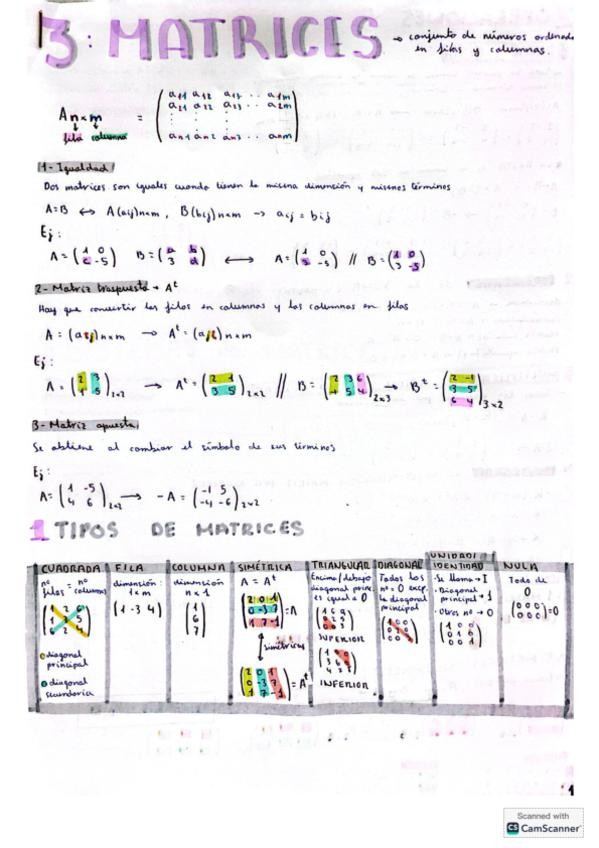 3: MATRICES → conjunto de números ordenados
en filas y columnas.
An×m = (a11 a12 a13 ·· a1m
a21 a22 a23 ·· a2m
an1 an2 an3 ·· anm)
fila columna
1- Igualdad
Dos matrices son iguales cuando tienen la misma dimensión y mismos términos
A=B ↔ A(aij)n×m , B(bij)n×m → aij = bij
Ej:
A = (1 0 / c -5) B = (a b / 3 d) ↔ A = (1 0 / 3 -5) // B = (1 0 / 3 -5)
2- Matriz traspuesta → Aᵗ
Hay que convertir las filas en columnas y las columnas en filas
A = (aij)n×m → Aᵗ =
Ej:
A = 2×2 → Aᵗ = (2 1 / 3 5)2×2 // B = (2 3 6 / -1 5 4)2×3 → Bᵗ = (2 -1 / 3 5 / 6 4)3×2
3- Matriz opuesta
Se obtiene al cambiar el símbolo de sus términos
Ej:
A = (1 -5 / 4 6)2×2 → -A = (-1 5 / -4 -6)2×2
1 TIPOS DE MATRICES
CUADRADA
nº filas = nº columnas
(1 2 6 / 1 3 5 / 6 2 4)
diagonal principal
diagonal secundaria
FILA
dimensión:
1×m
(1 -3 4)
COLUMNA
dimensión
n×1
(1 / 6 / 7)
SIMÉTRICA
A = Aᵗ
(2 0 1 / 0 -3 7 / 1 7 -1) = A
simétricas
(2 0 1 / 0 -3 7 / 1 7 -1) = Aᵗ
TRIANGULAR
Encima/debajo
diagonal princ.
es igual a 0
SUPERIOR
INFERIOR
DIAGONAL
Todos los
nº = 0 excp.
la diagonal
principal
UNIDAD/
IDENTIDAD
· Se llama → I
· Diagonal
principal → 1
· Otros nº → 0
(1 0 0 / 0 1 0 / 0 0 1)
NULA
Todo de
0
(0 0 0 / 0 0 0) = 0
1
Scanned with
CS CamScanner